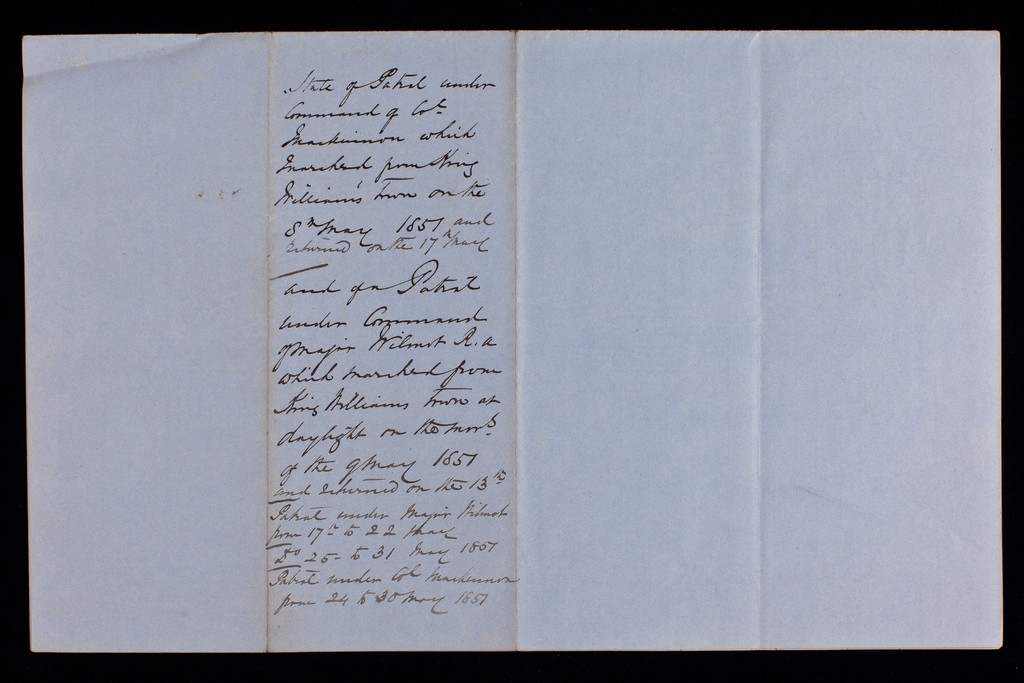 State of Patrol under
Command of Col.
Mackinnon which
Marched from King
William's Town on the
8th May 1851 and
returned on the 17th May
and of a Patrol
under Command
of Major Wilmot R.a
which marched from
King Williams Town at
daylight on the morg.
of the 9 May 1851
and returned on the 13th
Patrol under Major Wilmot
from 17th to 22 May
Do 25- to 31 May 1851
Patrol under Col Mackinnon
from 24 to 30 May 1851